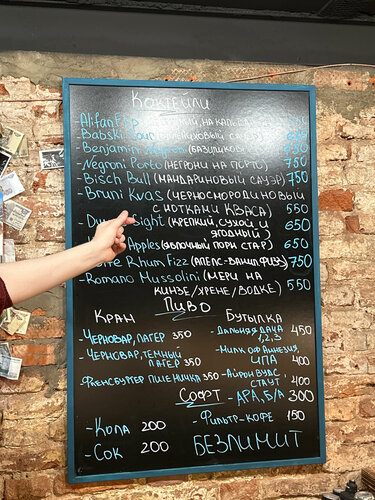 Коктейли
(
, на кальва
650
- Babski Sour
ховый са
650
- Benjamin
(Базиликовы
750
- Negroni Porto (негрони на порто)
750
- Bisch Bull (мандариновый сауэр) 750
- Bruni Kvas (черносмородиновый
с нотками кваса) 550
ight (крепкий, сухой и
ягодный) 650
Apples (яблочный порн стар) 650
Rhum Fizz (апес-ванил. физ) 750
- Romano Mussolini (мери на
кинзе/хрене/водке) 550
Пиво
Кран
- Черновар, лагер 350
- Черновар, тёмный
лагер 350
Френсбургер пшеничка 350
Бутылка
- Дальняя дача 450
1,2,3
- Милк оф амнезия,
ИПА 400
- Айрон вудс,
стаут 400
Софт
- АРА, Б/А 300
- Кола 200
- Фильтр-кофе 150
- Сок 200
Безлимит